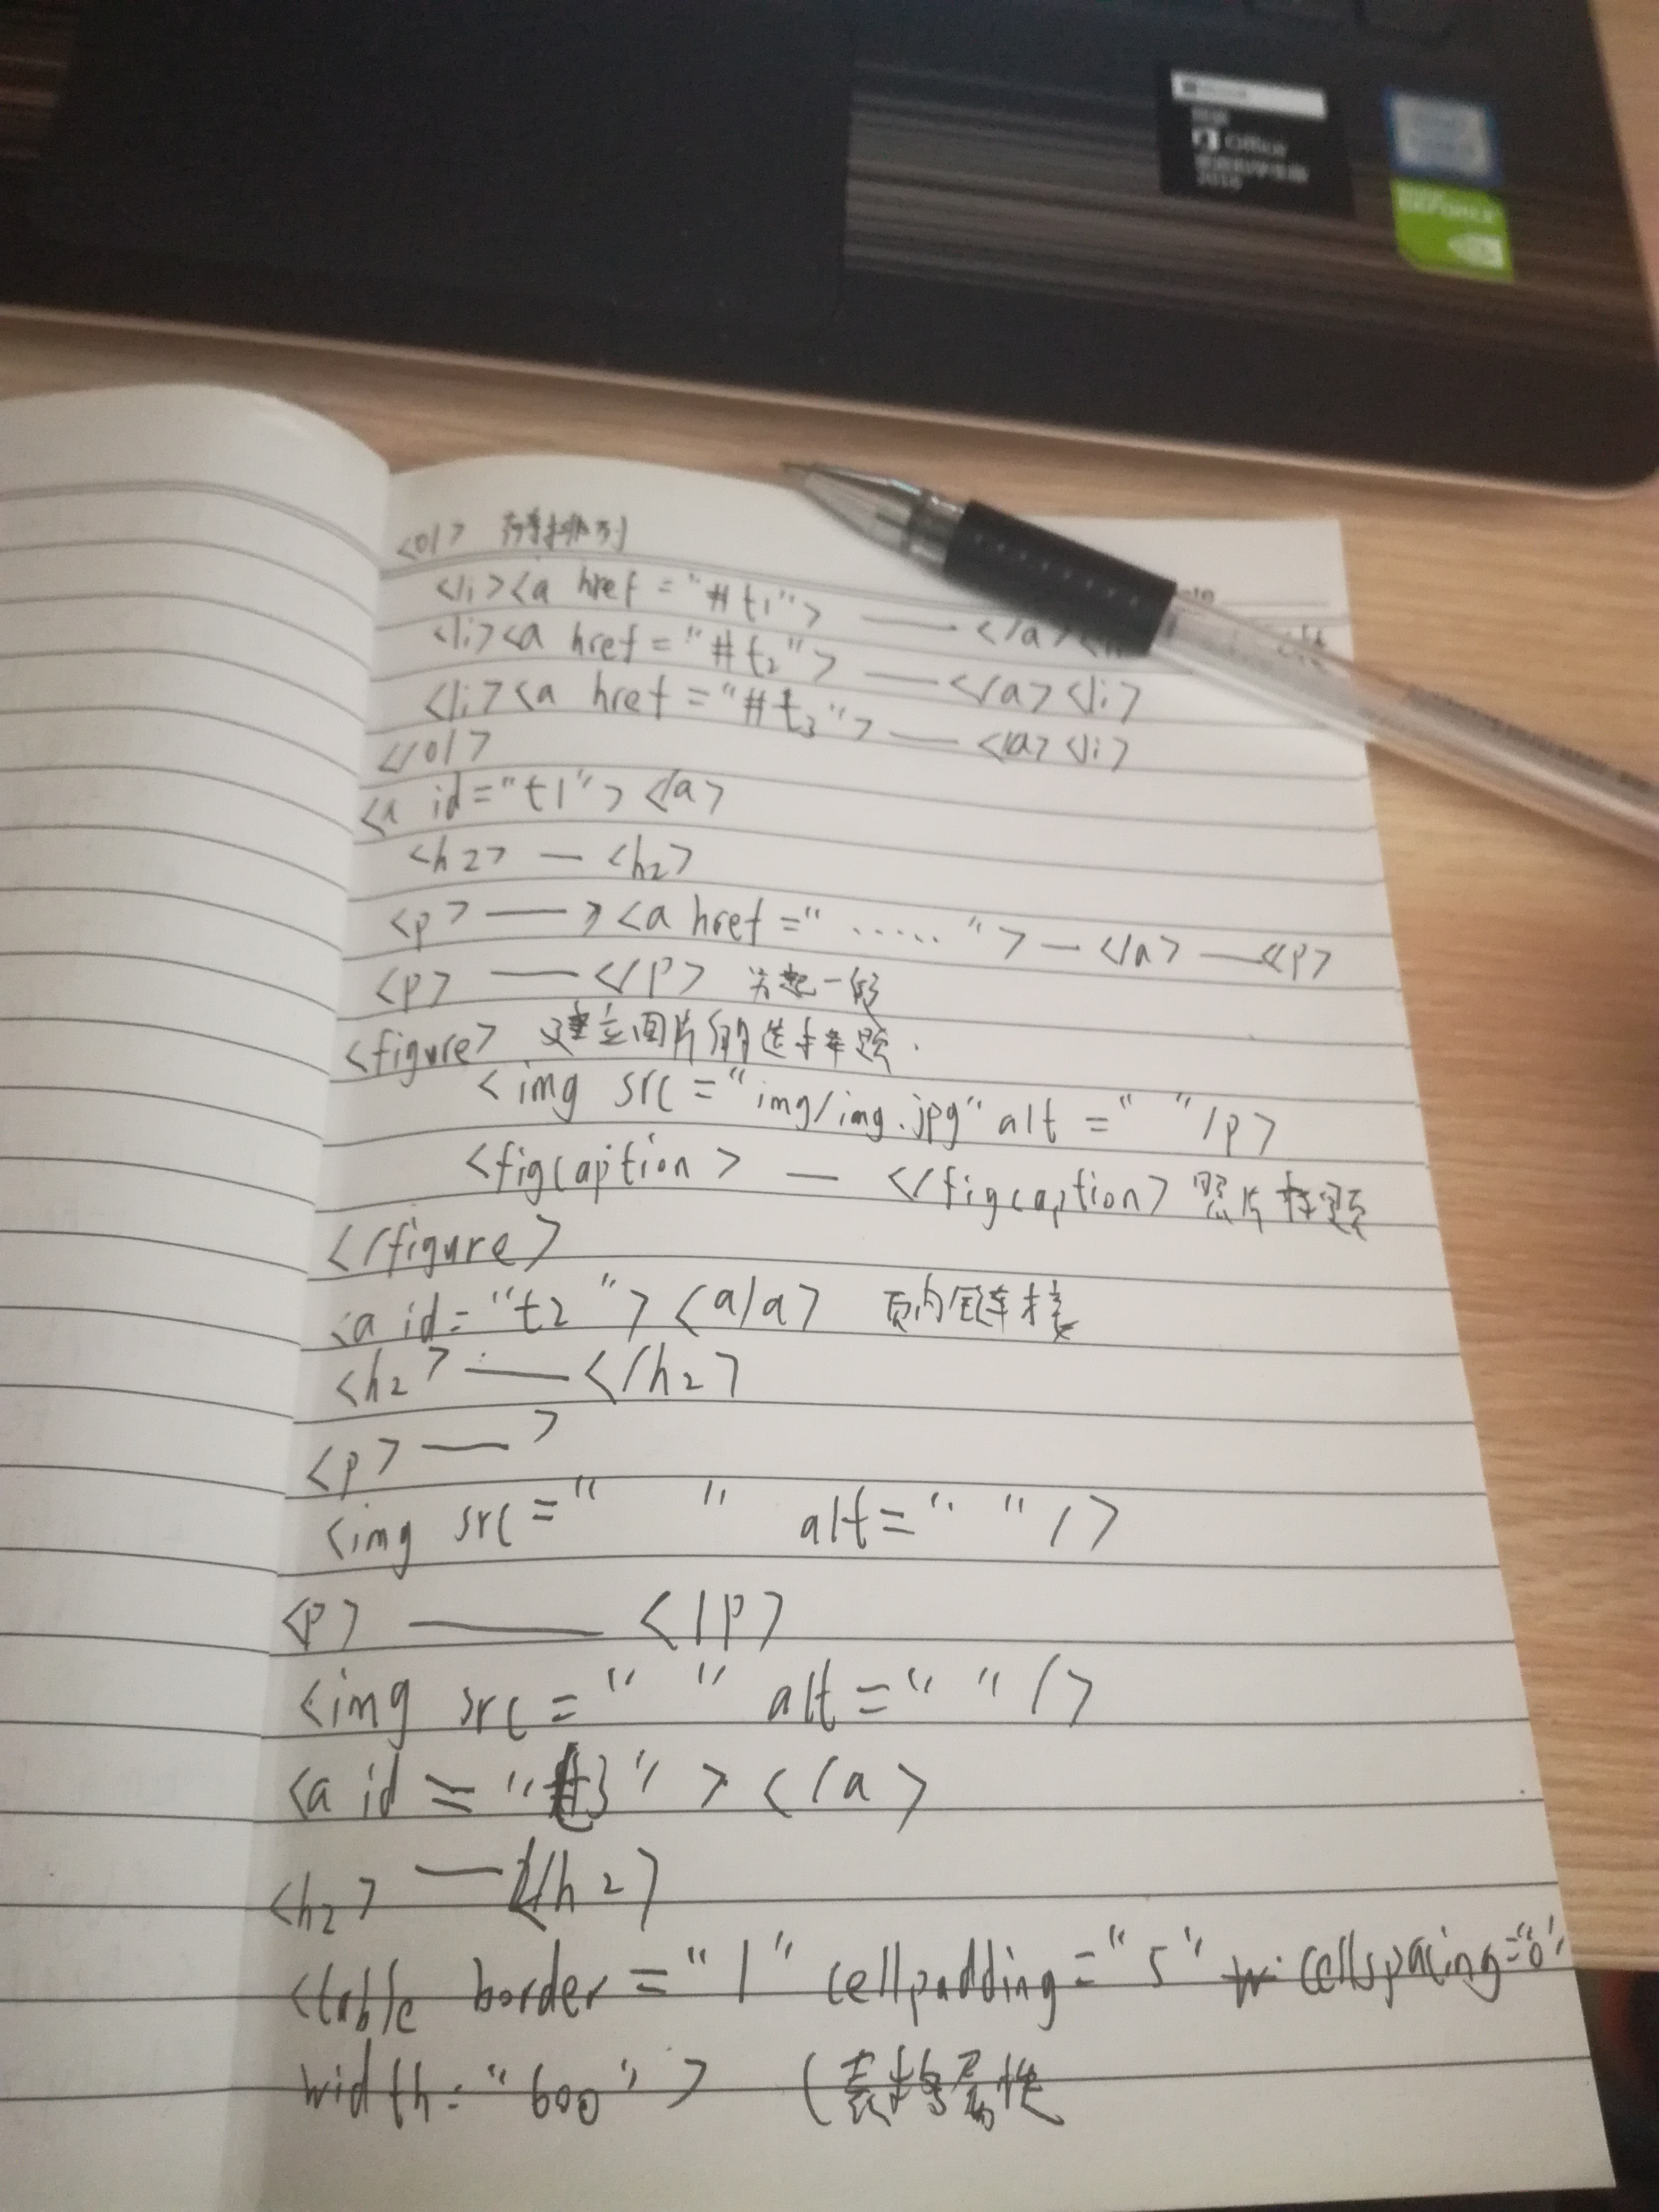 Office
2016
GEFORCE
<ol> 有序排列
<li><a href="#t1"> —— </a>
<li><a href="#t2"> —— </a><li>
<li><a href="#t3"> —— </a><li>
</ol>
<a id="t1"></a>
<h2> — <h2>
<p> —— > <a href="....."> — </a> —<p>
<p> —— </p> 另起一段
<figure> 建立图片的选择题.
<img src="img/img.jpg" alt=" "/p>
<figcaption> — </figcaption> 照片标题
</figure>
<a id="t2"> <a/a> 页内链接
<h2> —— </h2>
<p> —— >
<img src=" " alt=" "/>
<p> —— </p>
<img src=" " alt=" "/>
<a id="t3"></a>
<h2> — </h2>
<table border="1" cellpadding="5" cellspacing="0"
width="600"> (表格属性